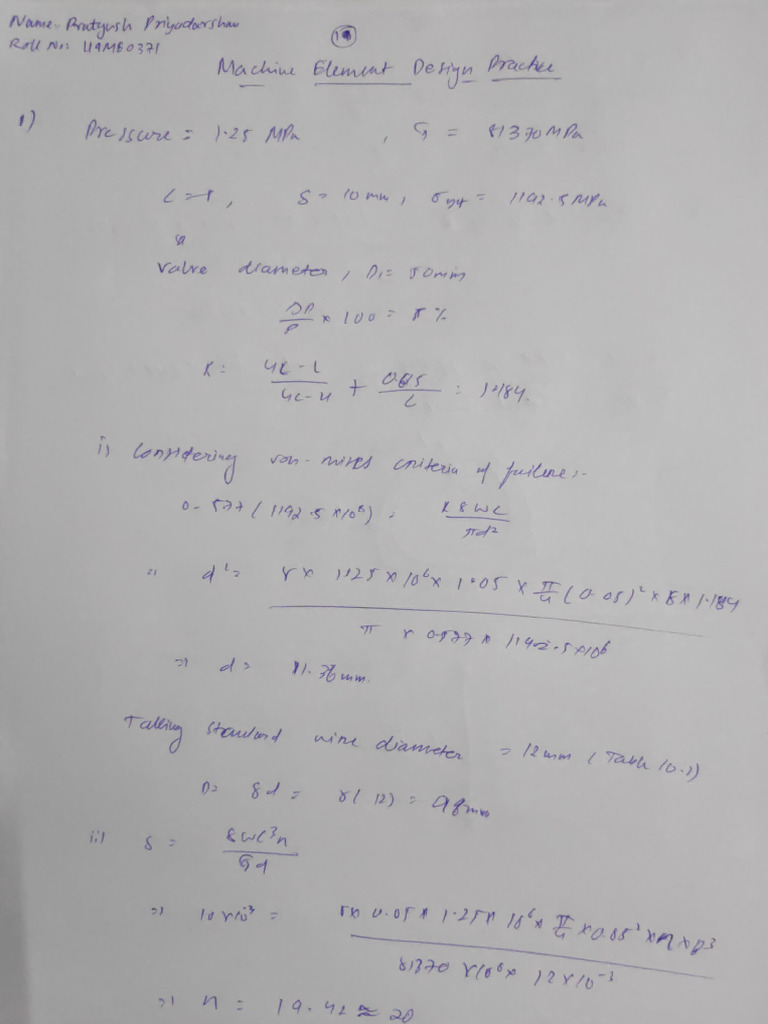 Name: Pratyush Priyadarshan
Roll No: 119ME0371
Machine Element Design Practice
1) Pressure = 1.25 MPa , G = 81370 MPa
C = 8 , δ = 10 mm , σut = 1192.5 MPa
valve diameter , D1 = 50mm
ΔP/P × 100 = 5%
K = (4C-1)/(4C-4) + 0.615/C = 1.184
i) Considering von-mises criteria of failure :-
0.577 (1192.5 × 10⁶) = K8WC/πd²
⇒ d² = 8 × 1.25 × 10⁶ × 1.05 × π/4 (0.05)² × 8 × 1.184 / π × 0.577 × 1192.5 × 10⁶
⇒ d = 11.36 mm.
Taking standard wire diameter = 12mm (Table 10.1)
D = 8d = 8(12) = 96mm
ii) δ = 8WC³n/Gd
⇒ 10 × 10⁻³ = 8 × 0.05 × 1.25 × 10⁶ × π/4 × 0.05² × n × 8³ / 81370 × 10⁶ × 12 × 10⁻³
⇒ n = 19.42 ≈ 20